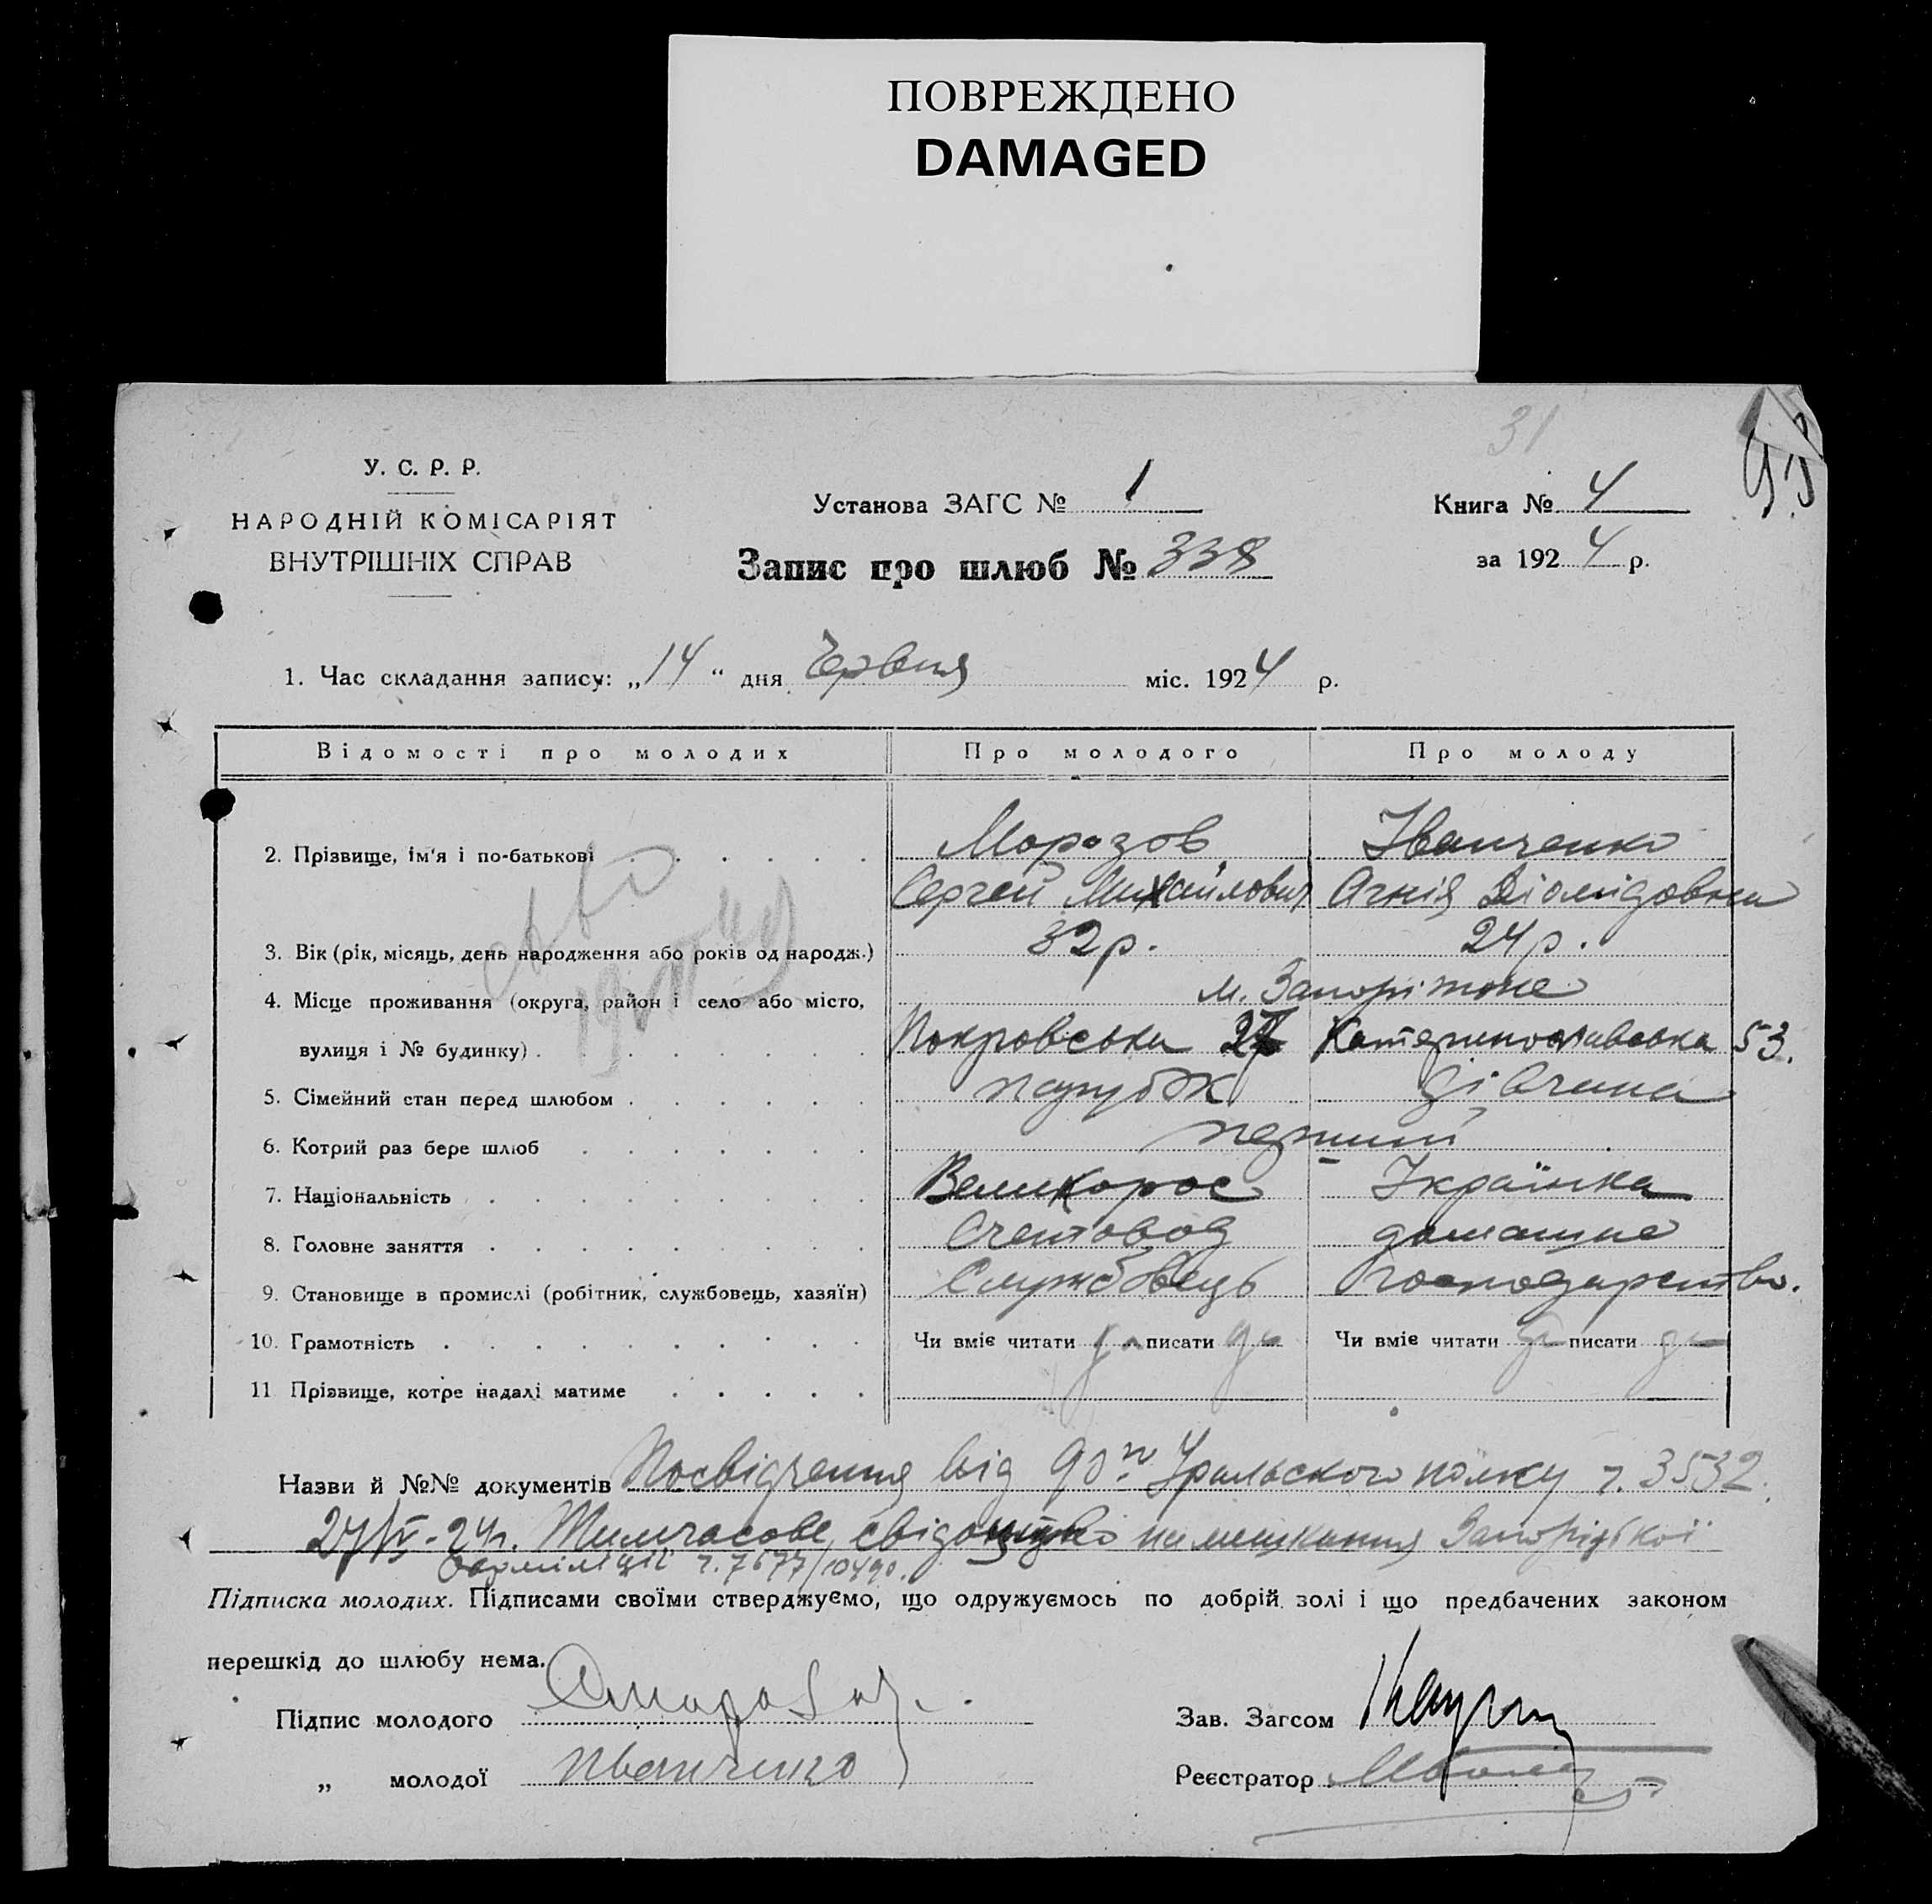 ПОВРЕЖДЕНО
DAMAGED
31
У. С. Р. Р.
НАРОДНІЙ КОМІСАРІЯТ
ВНУТРІШНІХ СПРАВ
Установа ЗАГС № 1
Книга № 4
Запис про шлюб № 338
за 1924 р.
1. Час складання запису: „14“ дня Червня міс. 1924 р.
Відомості про молодих Про молодого Про молоду
2. Прізвище, ім'я і по-батькові Морозов Іванченко
Сергей Михайлович Агнія Діомидовна
3. Вік (рік, місяць, день народження або років од народж.) 32 р. 24 р.
4. Місце проживання (округа, район і село або місто, м. Запоріжжє
вулиця і № будинку) Покровська 27 Катеринославська 53.
5. Сімейний стан перед шлюбом парубок дівчина
6. Котрий раз бере шлюб перший
7. Національність Великорос Українка
8. Головне заняття Счетовод домашне
9. Становище в промислі (робітник, службовець, хазяїн) Службовець господарство.
10. Грамотність Чи вміє читати да писати да Чи вміє читати да писати да
11 Прізвище, котре надалі матиме
Назви й №№ документів Посвідчення від 90го Уральского полку ч. 3532.
Тимчасове свідоцтво на мешкання Запорізької
ч. 7677/10490.
Підписка молодих. Підписами своїми стверджуємо, що одружуємось по добрій золі і що предбачених законом
перешкід до шлюбу нема.
Підпис молодого
Зав. Загсом
„ молодої Иванченко
Реєстратор